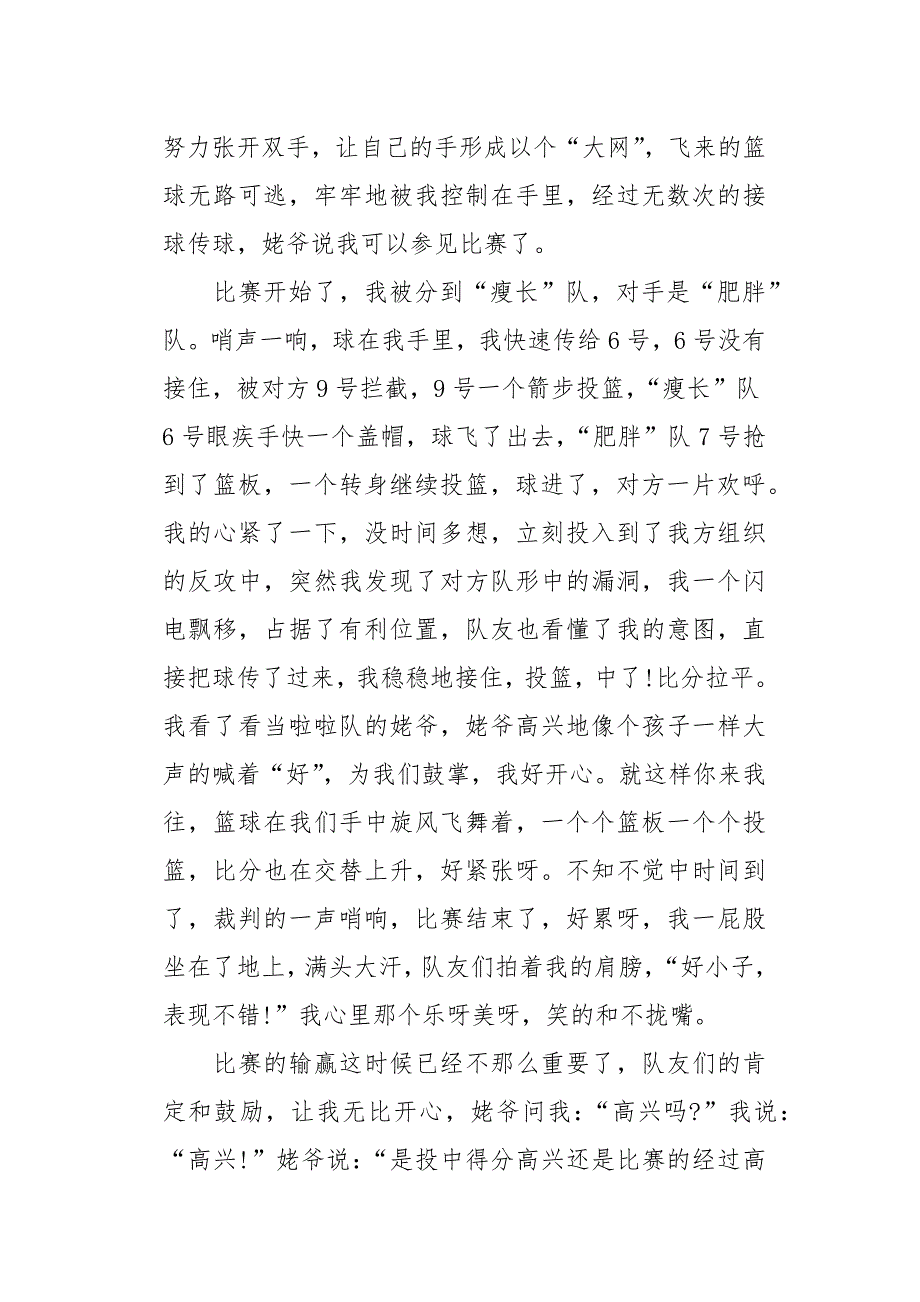 努力张开双手，让自己的手形成以个“大网”，飞来的篮
球无路可逃，牢牢地被我控制在手里，经过无数次的接
球传球，姥爷说我可以参见比赛了。
比赛开始了，我被分到“瘦长”队，对手是“肥胖”
队。哨声一响，球在我手里，我快速传给6号，6号没有
接住，被对方9号拦截，9号一个箭步投篮，“瘦长”队
6号眼疾手快一个盖帽，球飞了出去，“肥胖”队7号抢
到了篮板，一个转身继续投篮，球进了，对方一片欢呼。
我的心紧了一下，没时间多想，立刻投入到了我方组织
的反攻中，突然我发现了对方队形中的漏洞，我一个闪
电飘移，占据了有利位置，队友也看懂了我的意图，直
接把球传了过来，我稳稳地接住，投篮，中了!比分拉平。
我看了看当啦啦队的姥爷，姥爷高兴地像个孩子一样大
声的喊着“好”，为我们鼓掌，我好开心。就这样你来我
往，篮球在我们手中旋风飞舞着，一个个篮板一个个投
篮，比分也在交替上升，好紧张呀。不知不觉中时间到
了，裁判的一声哨响，比赛结束了，好累呀，我一屁股
坐在了地上，满头大汗，队友们拍着我的肩膀，“好小子，
表现不错!”我心里那个乐呀美呀，笑的和不拢嘴。
比赛的输赢这时候已经不那么重要了，队友们的肯
定和鼓励，让我无比开心，姥爷问我：“高兴吗?”我说：
“高兴!”姥爷说：“是投中得分高兴还是比赛的经过高